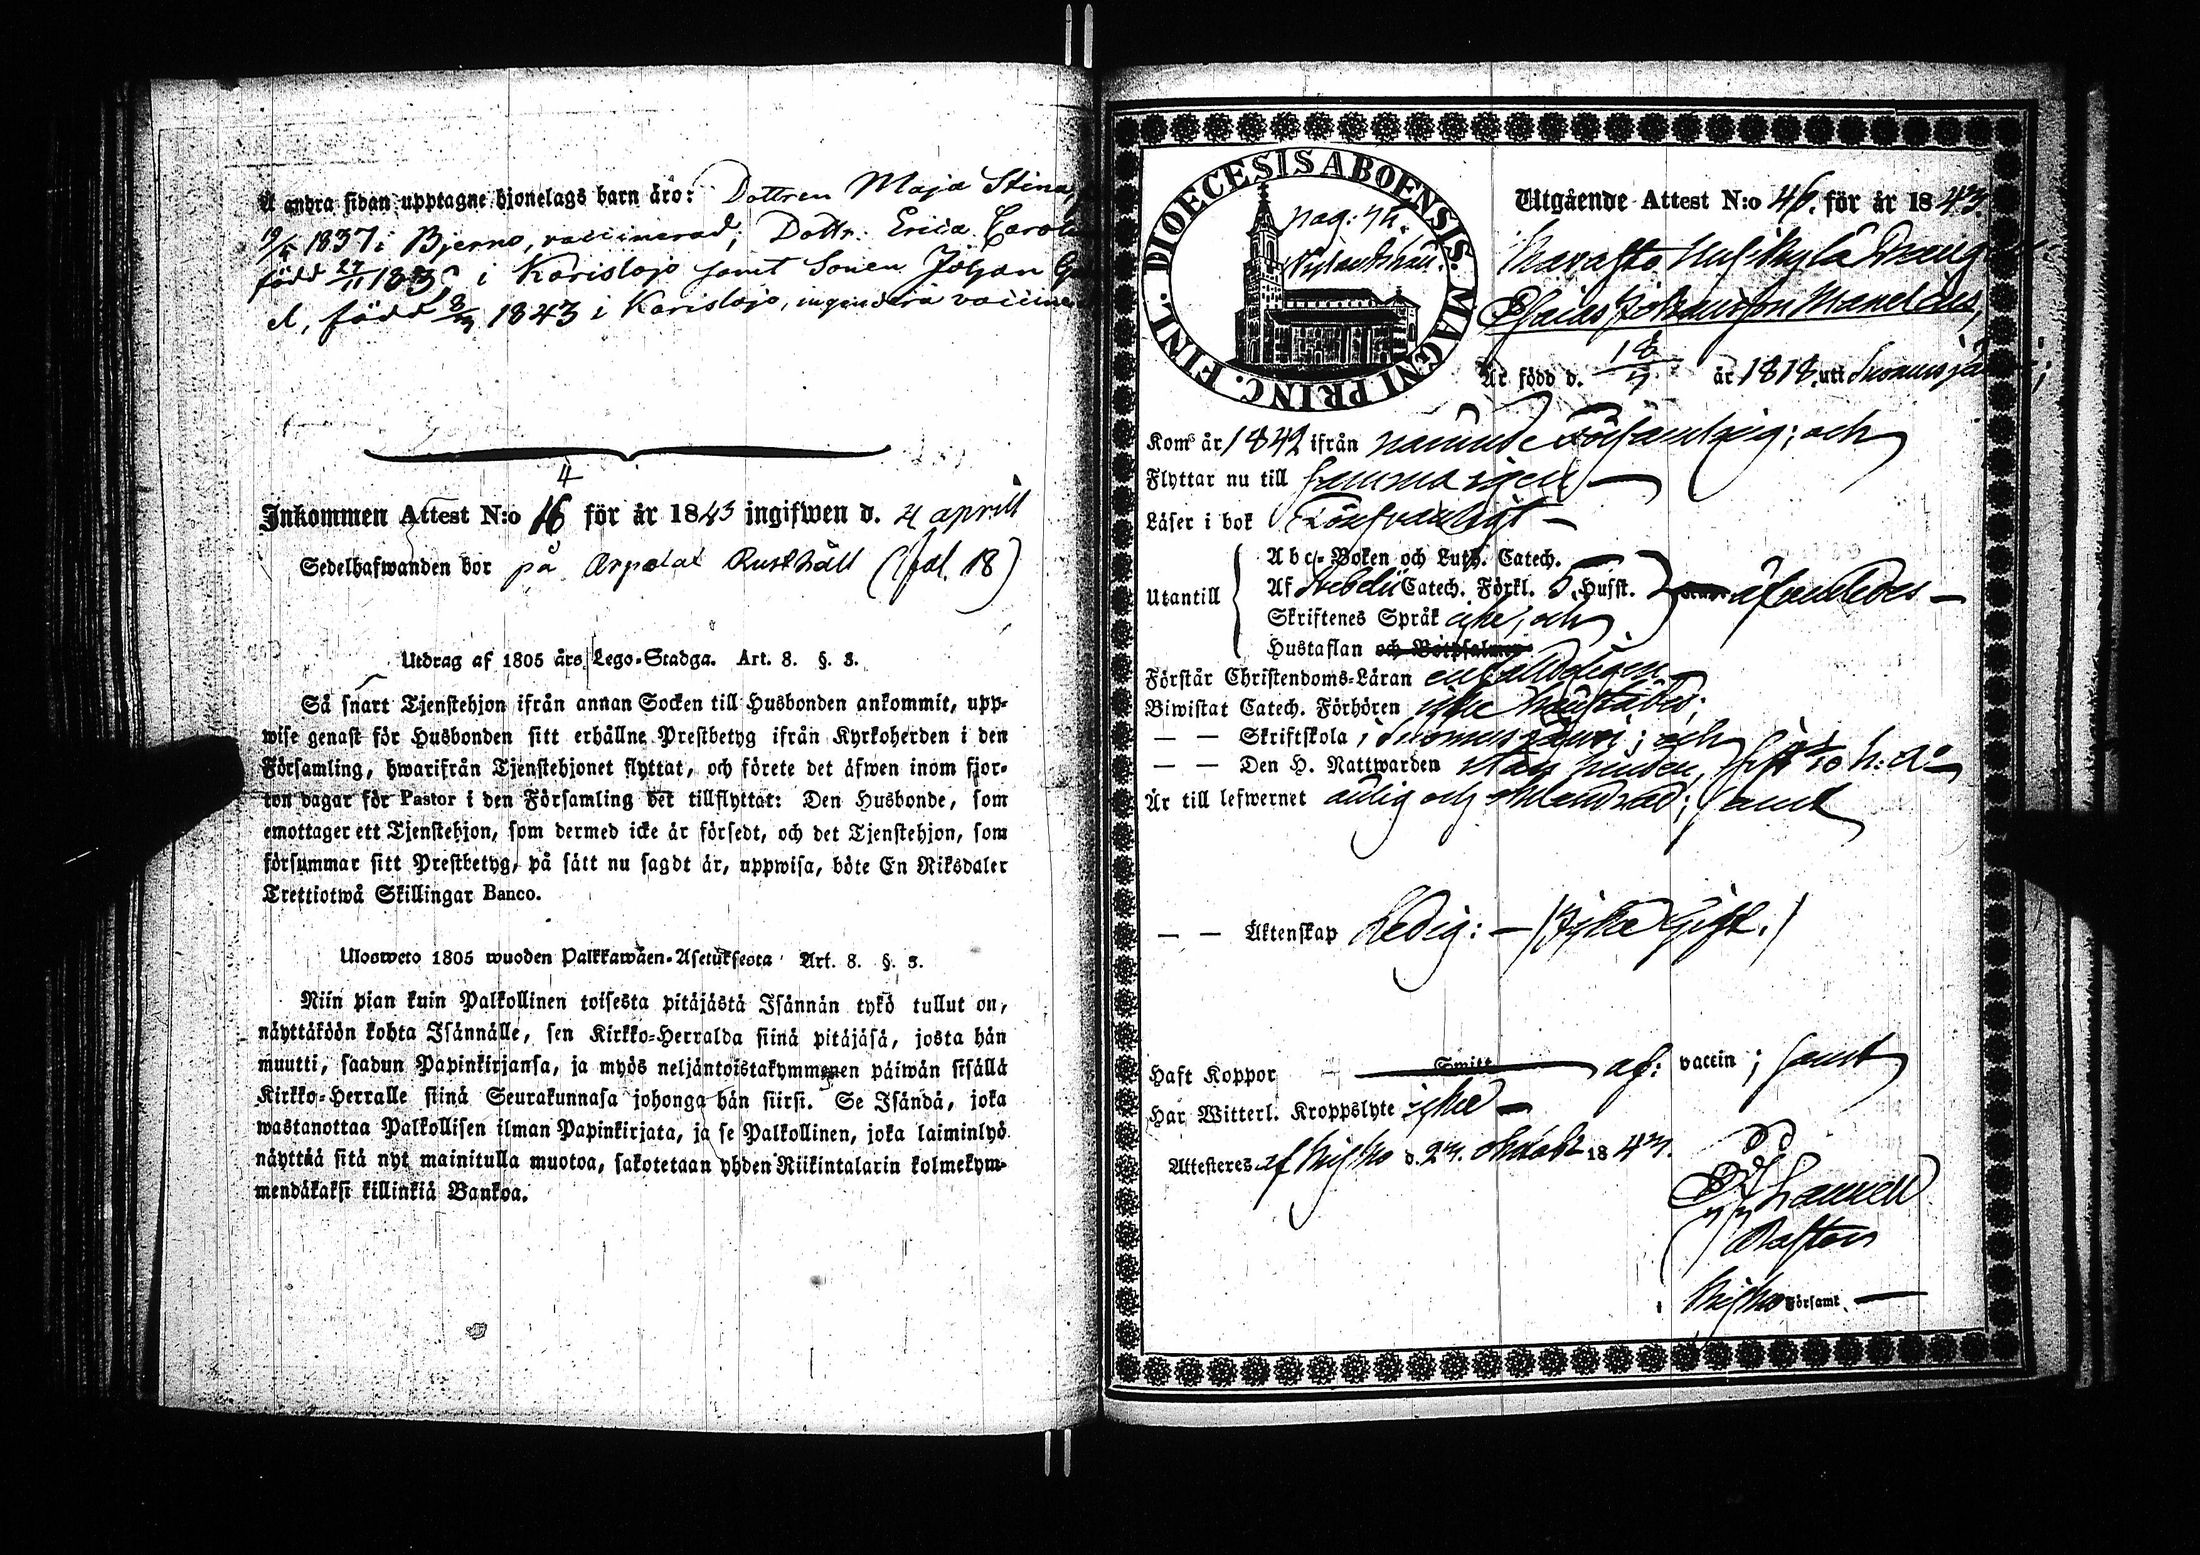 Å andra sidan upptagne hjonelags barn äro: Dottren Maja Stina,
19/5 1837 i Bjerno, vaccinerad; Dottr. Erica Carol
född 27/11 183 i Karislojo samt Sonen Johan G
d, född 8/3 1843 i Karislojo, ingendera vaccine
4
Inkommen Attest N:o 16 för år 1843 ingifwen d. 21 aprill
Sedelhafwanden bor på Arpalat Rusthåll (fol. 18)
Utdrag af 1805 års Lego-Stadga. Art. 8. §. 3.
Så snart Tjenstehjon ifrån annan Socken till Husbonden ankommit, upp-
wise genast för Husbonden sitt erhållne Prestbetyg ifrån Kyrkoherden i den
Församling, hwarifrån Tjenstehjonet flyttat, och förete det äfwen inom fjor-
ton dagar för Pastor i den Församling det tillflyttat: Den Husbonde, som
emottager ett Tjenstehjon, som dermed icke är försedt, och det Tjenstehjon, som
försummar sitt Prestbetyg, på sätt nu sagdt är, uppwisa, böte En Riksdaler
Trettiotwå Skillingar Banco.
Ulosweto 1805 wuoden Palkkawäen-Asetuksesta Art. 8. §. 3.
Niin pian kuin Palkollinen toisesta pitäjästä Isännän tykö tullut on,
näyttäköön kohta Isännälle, sen Kirkko-Herralda siinä pitäjäsä, josta hän
muutti, saadun Papinkirjansa, ja myös neljäntoistakymmenen päiwän sisällä
Kirkko-Herralle siinä Seurakunnasa johonga hän siirsi. Se Isändä, joka
wastanottaa Palkollisen ilman Papinkirjata, ja se Palkollinen, joka laiminlyö
näyttää sitä nyt mainitulla muotoa, sakotetaan yhden Riikintalarin kolmekym-
mendäkaksi killinkiä Bankoa.
DIOECESIS ABOENSIS. MAGNI PRINC. FINL.
pag: 74.
Utgående Attest N:o 46. för år 1843.
Esaias Johansson
Är född d. 18/7 år 1818. uti Suomusjä
Kom år 1842 ifrån nämnde Församling; och
Flyttar nu till samma igen —
Läser i bok Försvarligt —
Utantill
Abc-Boken och Luth. Catech.
Af Svebelii Catech. Förkl. 5. Hufst.
äfvenledes —
Skriftenes Språk icke, och
Hustaflan och Botpsalmen
Förstår Christendoms-Läran enfaldigen
Biwistat Catech. Förhören icke härstädes;
— — Skriftskola i Suomusjärvi; och
— — Den H. Nattwarden
Är till lefwernet ärlig och oklandrad; samt
— — Äktenskap Ledig: — (Icke Gift.)
Haft Koppor Smitt af: vaccin; samt
Har Witterl. Kroppslyte icke —
Attesteras af Wichtis d. 23. Oktobr 1843.
Pastor
i församl. —